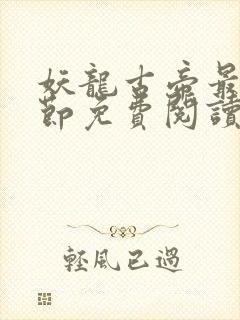 妖龍古帝最
節免費閱讀
輕風已過